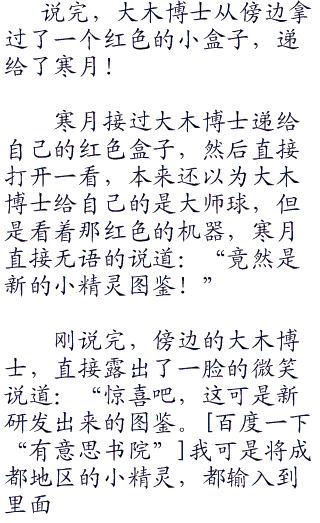 说完，大木博士从傍边拿
过了一个红色的小盒子，递
给了寒月！
寒月接过大木博士递给
自己的红色盒子，然后直接
打开一看，本来还以为大木
博士给自己的是大师球，但
是看着那红色的机器，寒月
直接无语的说道：“竟然是
新的小精灵图鉴！”
刚说完，傍边的大木博
士，直接露出了一脸的微笑
说道：“惊喜吧，这可是新
研发出来的图鉴。[百度一下
“有意思书院”]我可是将成
都地区的小精灵，都输入到
里面